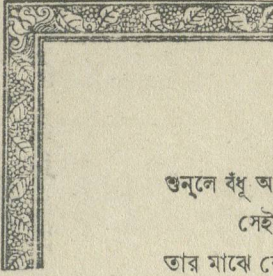 শুনলে বঁধূ অ
সেই
তার মাঝে